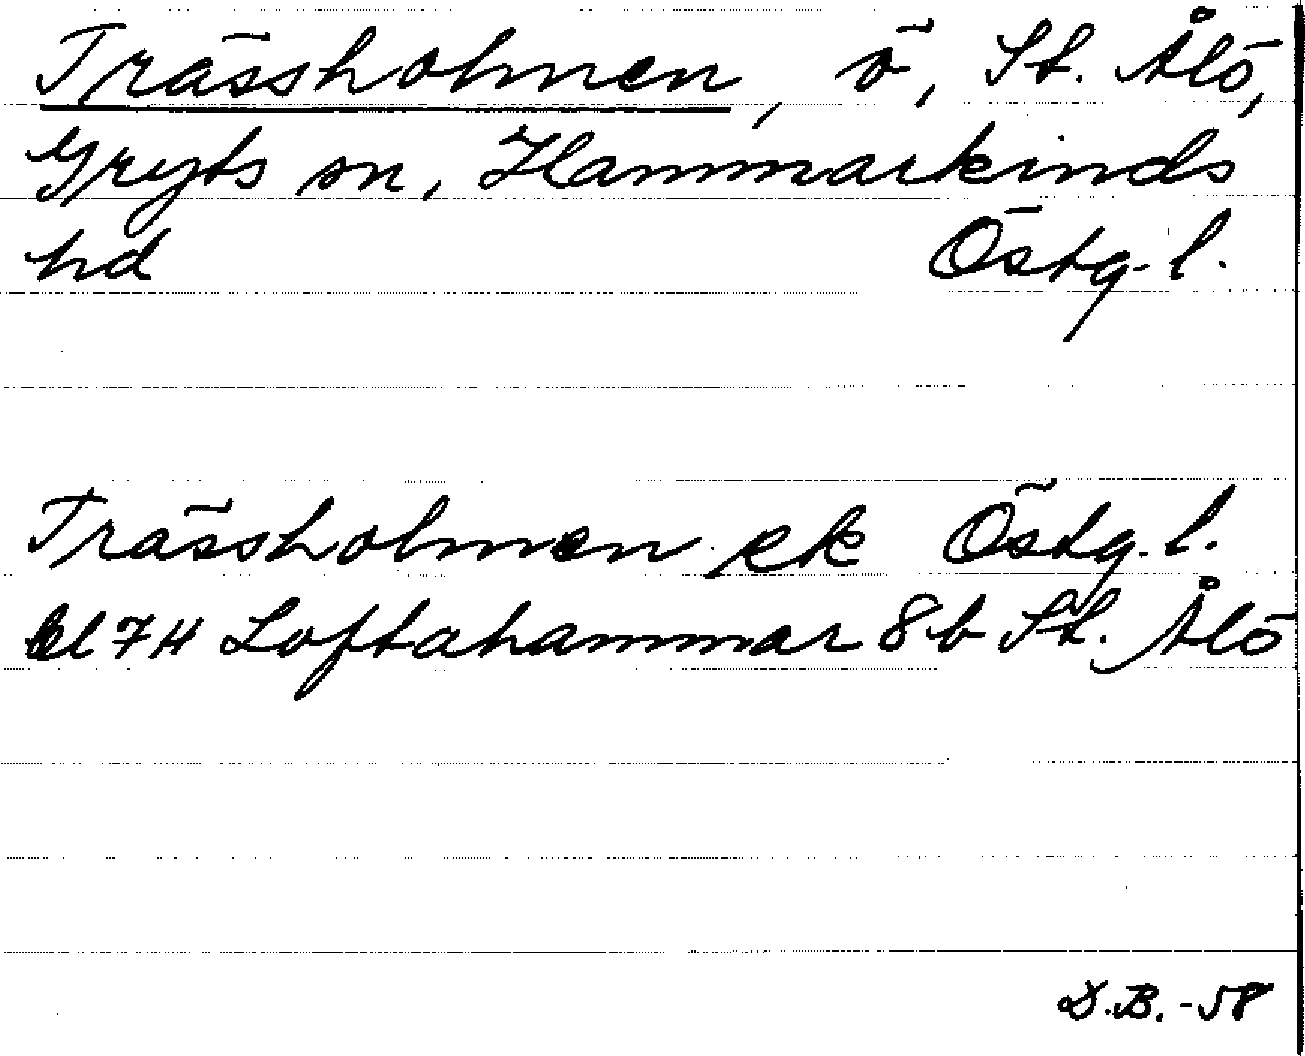 Trässholmen, ö, St. Ålö,
Gryts sn, Hammarkinds
hd Östg. l.
Trässholmen ek Östg. l.
bl 74 Loftahammar 8b St. Ålö
D.B. -58